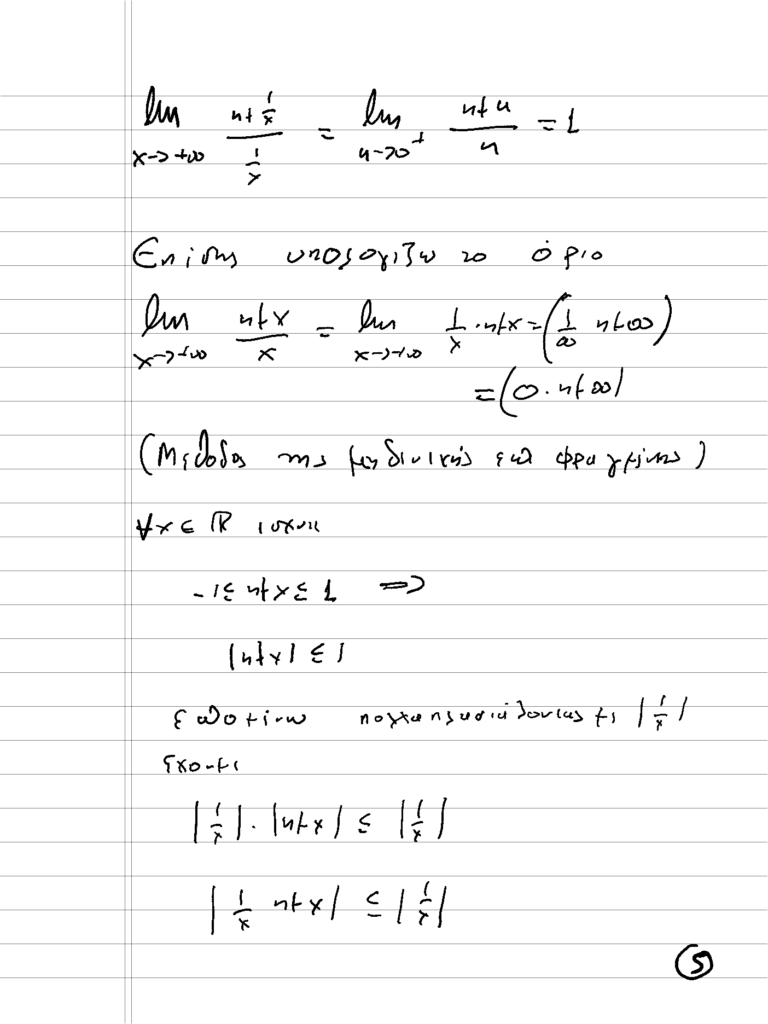 lim x→+∞ ημ 1/x / 1/x = lim u→0⁺ ημu / u = 1
Επίσης υπολογίζω το όριο
lim x→+∞ ημx / x = lim x→+∞ 1/x · ημx = (1/∞ ημ∞)
= (0 · ημ∞)
(Μέθοδος της μηδενικής επί φραγμένης)
∀x ∈ ℝ ισχύει
-1 ≤ ημx ≤ 1 ⇒
|ημx| ≤ 1
πολλαπλασιάζοντας με |1/x|
έχουμε
|1/x| · |ημx| ≤ |1/x|
|1/x ημx| ≤ |1/x|
5